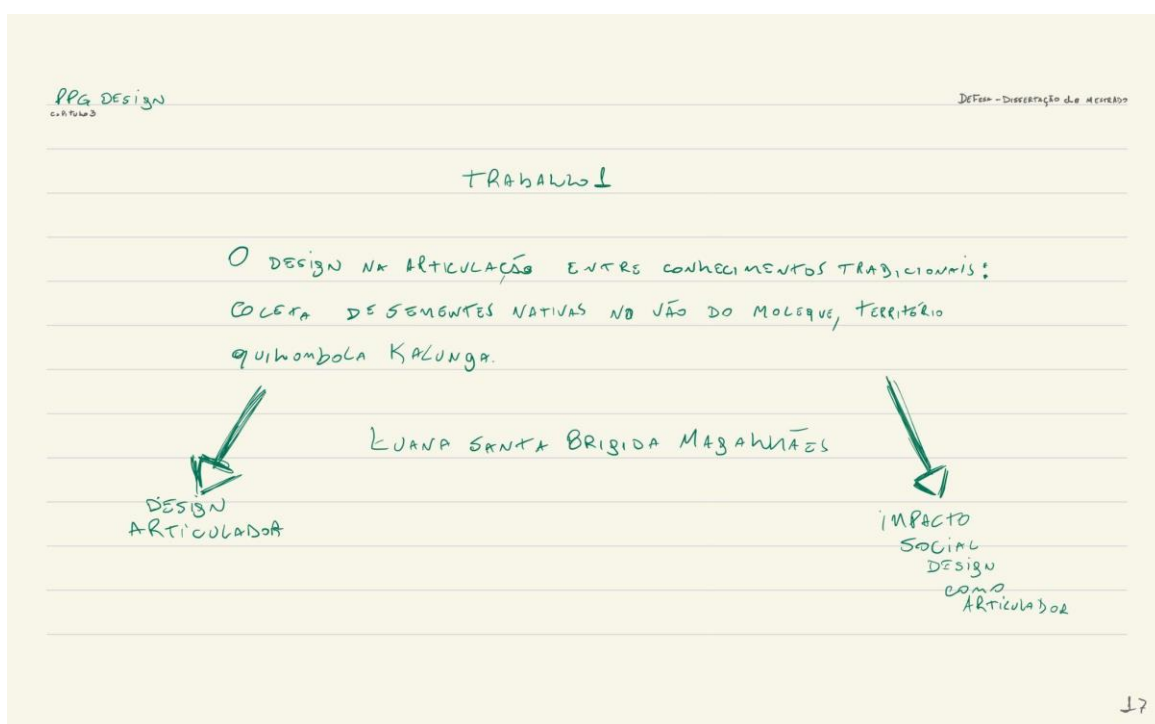 PPG DESIGN
CAPÍTULO 3
DEFESA - DISSERTAÇÃO de MESTRADO
TRABALHO 1
O DESIGN NA ARTICULAÇÃO ENTRE CONHECIMENTOS TRADICIONAIS:
COLETA DE SEMENTES NATIVAS NO VÃO DO MOLEQUE, TERRITÓRIO
quilombola KALUNGA.
LUANA SANTA BRIGIDA MAGALHÃES
DESIGN
ARTICULADOR
IMPACTO
SOCIAL
DESIGN
COMO
ARTICULADOR
17